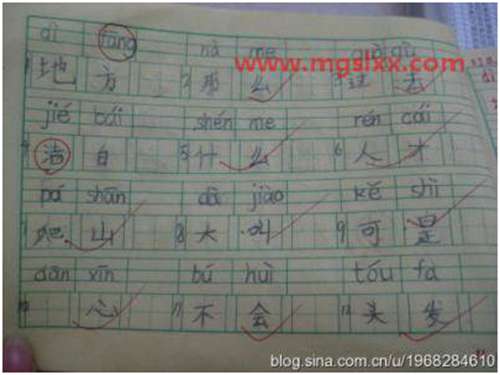 dì fāng nà me guò qù
1 地方 2 那么 3 过去
www.mgslxx.com
jié bái shén me rén cái
4 洁白 5 什么 6 人才
pá shān dà jiào kě shì
7 爬山 8 大叫 9 可是
dān xīn bú huì tóu fà
10 心 11 不会 12 头发
blog.sina.com.cn/u/1968284610